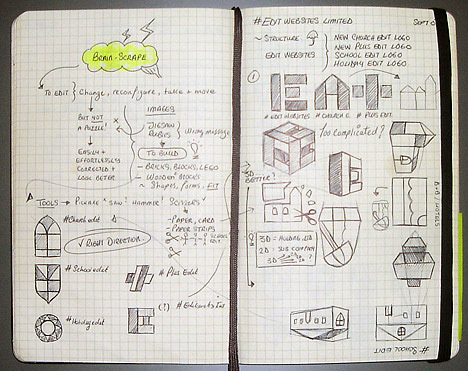 BRAIN-SCRAPE
TO EDIT
Change, reconfigure, take + move
BUT NOT
A PUZZLE!
EASILY +
EFFORTLESSLY
CORRECTED +
LOOK BETTER
IMAGES
JIGSAW
RUBIX
Wrong message
TO BUILD
- BRICKS, BLOCKS, LEGO
- WOODEN BLOCKS
~ Shapes, forms, FIT
TOOLS → PICKAXE SAW HAMMER SCISSORS
- PAPER, CARD
- PAPER STRIPS
# Church edit
✓ RIGHT DIRECTION
# School edit
# Plus Edit
# Holiday edit
(?)
#EDIT WEBSITES LIMITED
SEPT
~ STRUCTURE
EDIT WEBSITES
NEW CHURCH EDIT LOGO
NEW PLUS EDIT LOGO
SCHOOL EDIT LOGO
HOLIDAY EDIT LOGO
1
# EDIT WEBSITES
# CHURCH E.
# PLUS EDIT
Too complicated?
3D
BETTER!
3D = HOLDING LTD
2D = SUB COMPANY
3D
B+B / HOTELS
# SCHOOL EDIT